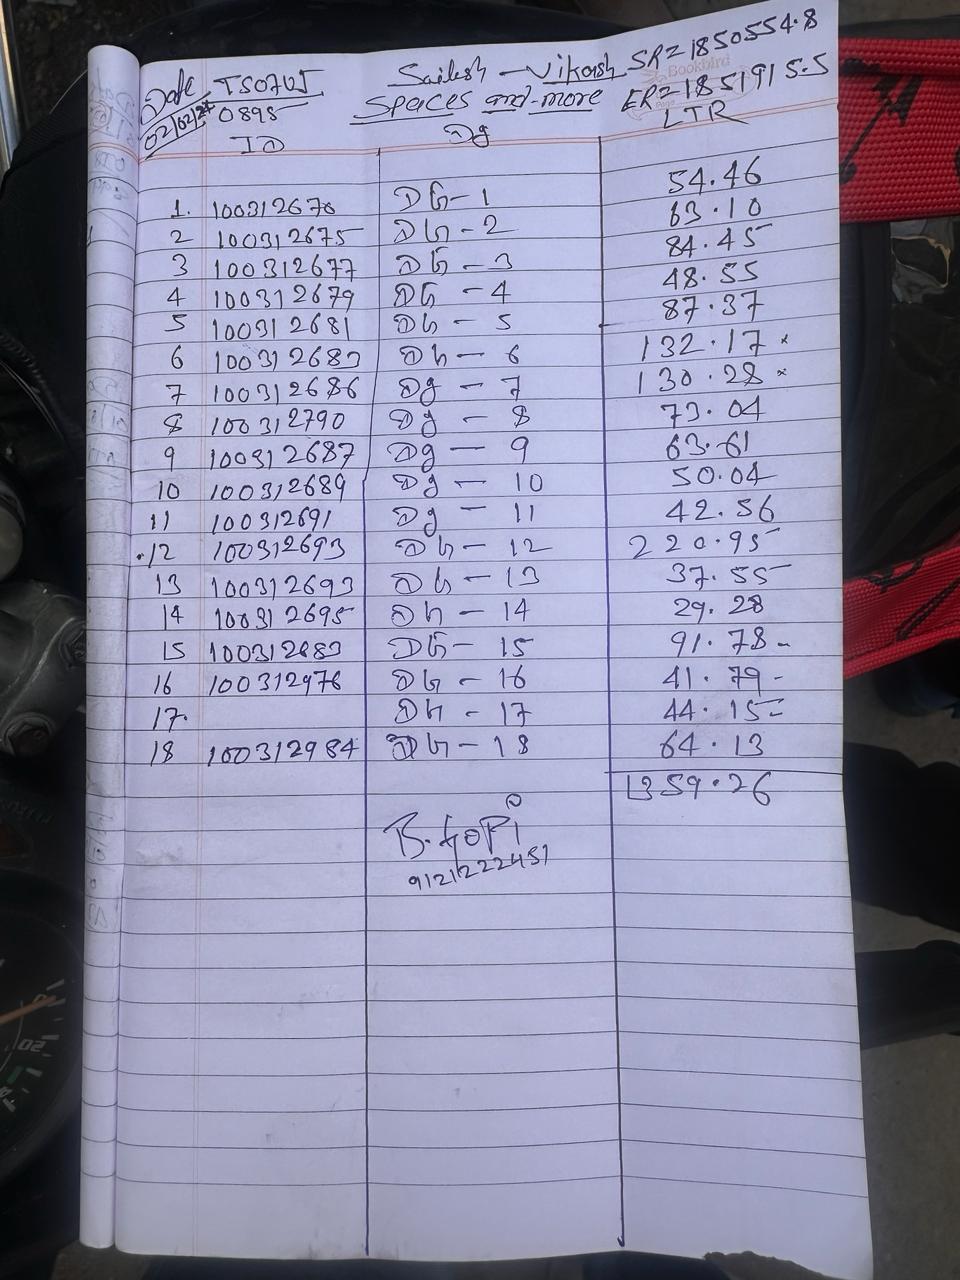 Date TS07UJ Sailesh - Vikash SR=1850554.8
02/02/24 0898 Spaces and more ER=1851915.5
ID Dg LTR
1. 100312676 DG-1 54.46
2 100312675 DG-2 63.10
3 100312677 DG-3 84.45
4 100312679 DG-4 48.55
5 100312681 DG-5 87.37
6 100312683 DG-6 132.17 ×
7 100312686 Dg-7 130.28 ×
8 100312790 Dg-8 73.04
9 100312687 Dg-9 63.61
10 100312689 Dg-10 50.04
11 100312691 Dg-11 42.56
.12 100312693 DG-12 220.95
13 100312693 DG-13 37.55
14 100312695 DG-14 29.28
15 100312683 DG-15 91.78-
16 100312976 DG-16 41.79-
17. DG-17 44.15=
18 100312984 DG-18 64.13
1359.26
B. Gopi
9121222451